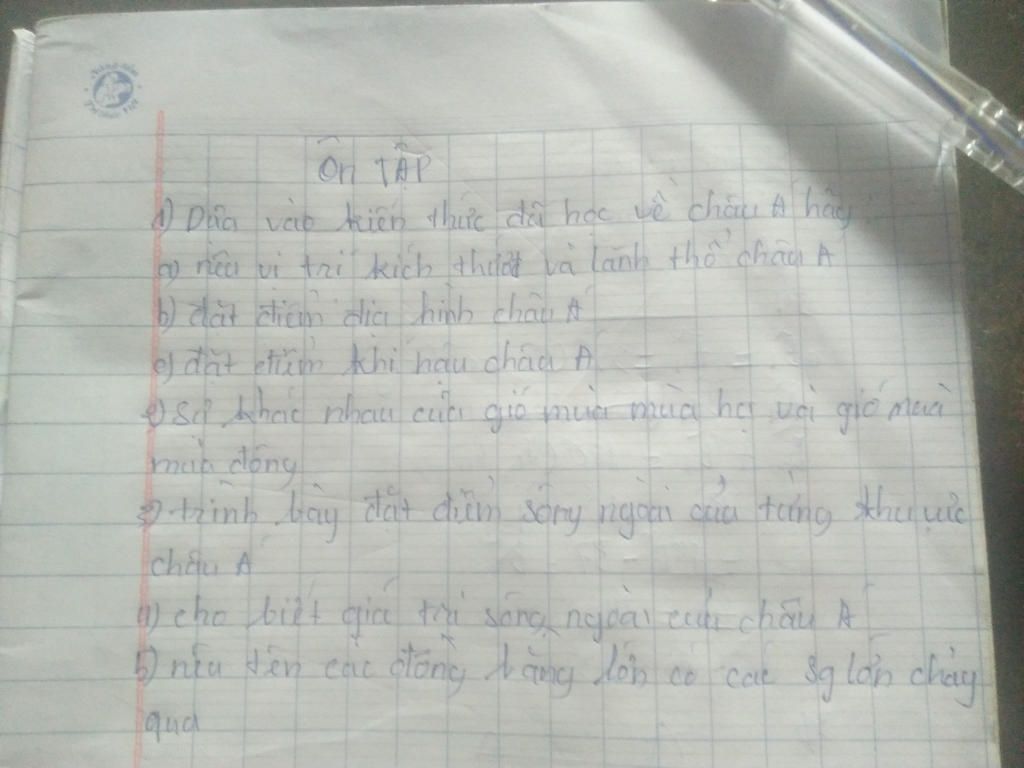 Ôn TẬP
1) Dựa vào kiến thức đã học về châu Á hãy:
a) nêu vị trí kích thướt và lãnh thổ châu Á
b) đặt điểm địa hình châu Á
c) đặt điểm khí hậu châu Á
2) sự khác nhau của gió mùa mùa hạ và gió mùa
mùa đông
3) trình bày đặt điểm sông ngoài của từng khu vực
châu Á
4) cho biết giá trị sông ngoài của châu Á
5) nêu tên các đồng bằng lớn có các sg lớn chảy
qua